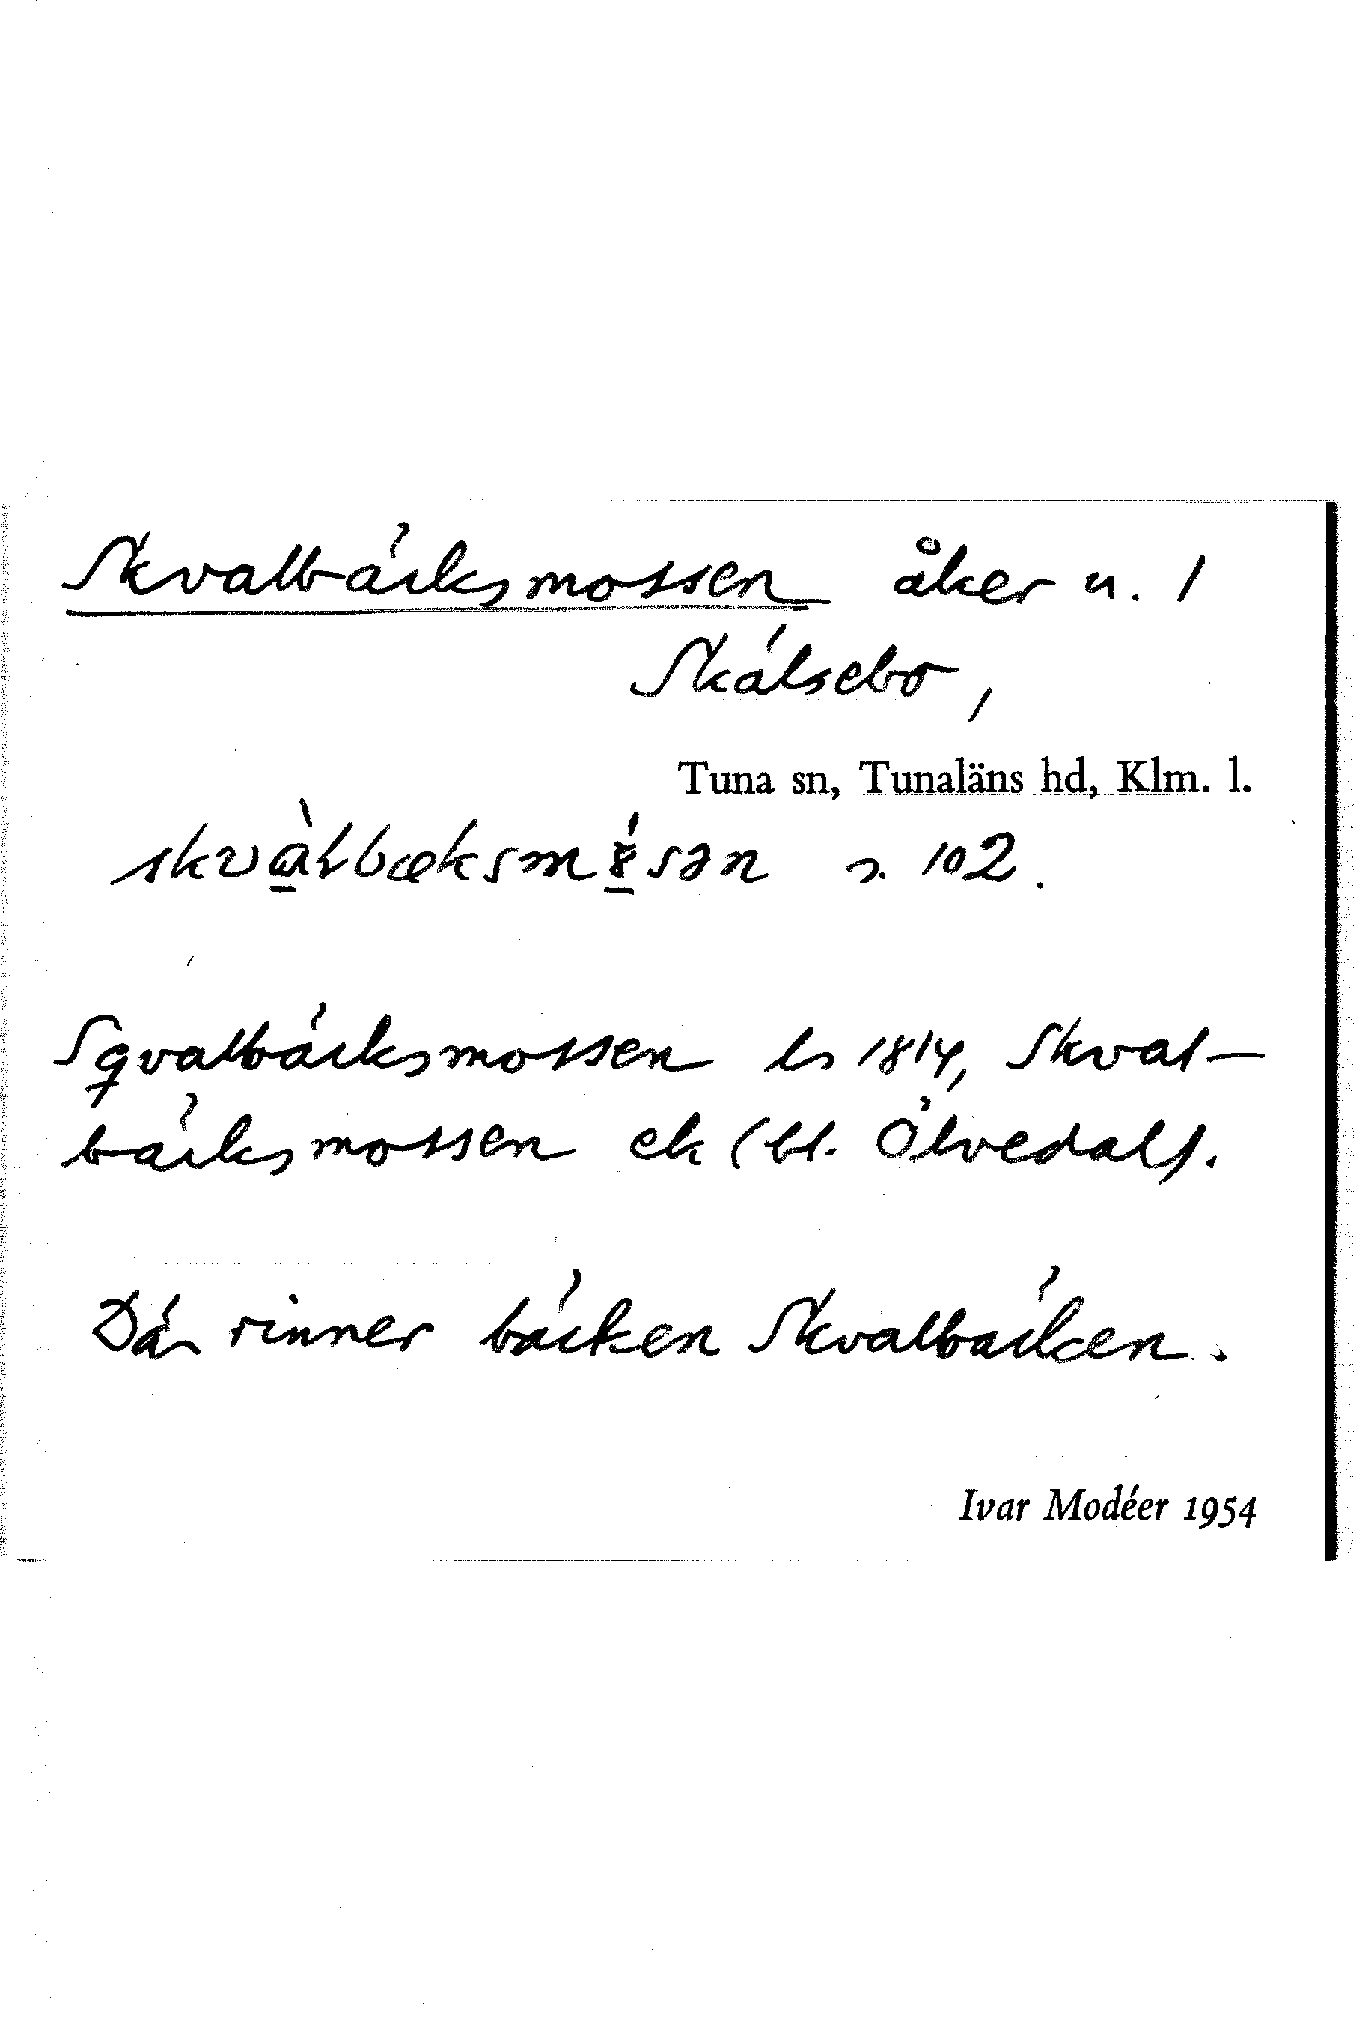 Skvalbäcksmossen åker u. 1
Skälsebo,
Tuna sn, Tunaläns hd, Klm. l.
skvàlbæksmósən s. 102.
Sqvalbäcksmossen ls 1814, Skval-
bäcksmossen ek (bl. Ölvedal).
Där rinner bäcken Skvalbäcken.
Ivar Modéer 1954